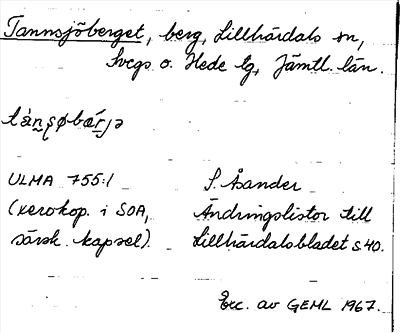 Tannsjöberget, berg, Lillhärdals sn,
Svegs o. Hede tg, Jämtl. län.
ULMA 755:1
(xerokop. i SOA,
särsk. kapsel).
S. Åsander
Ändringslistor till
Lillhärdalsbladet s 40.
Exc. av GEML 1967.